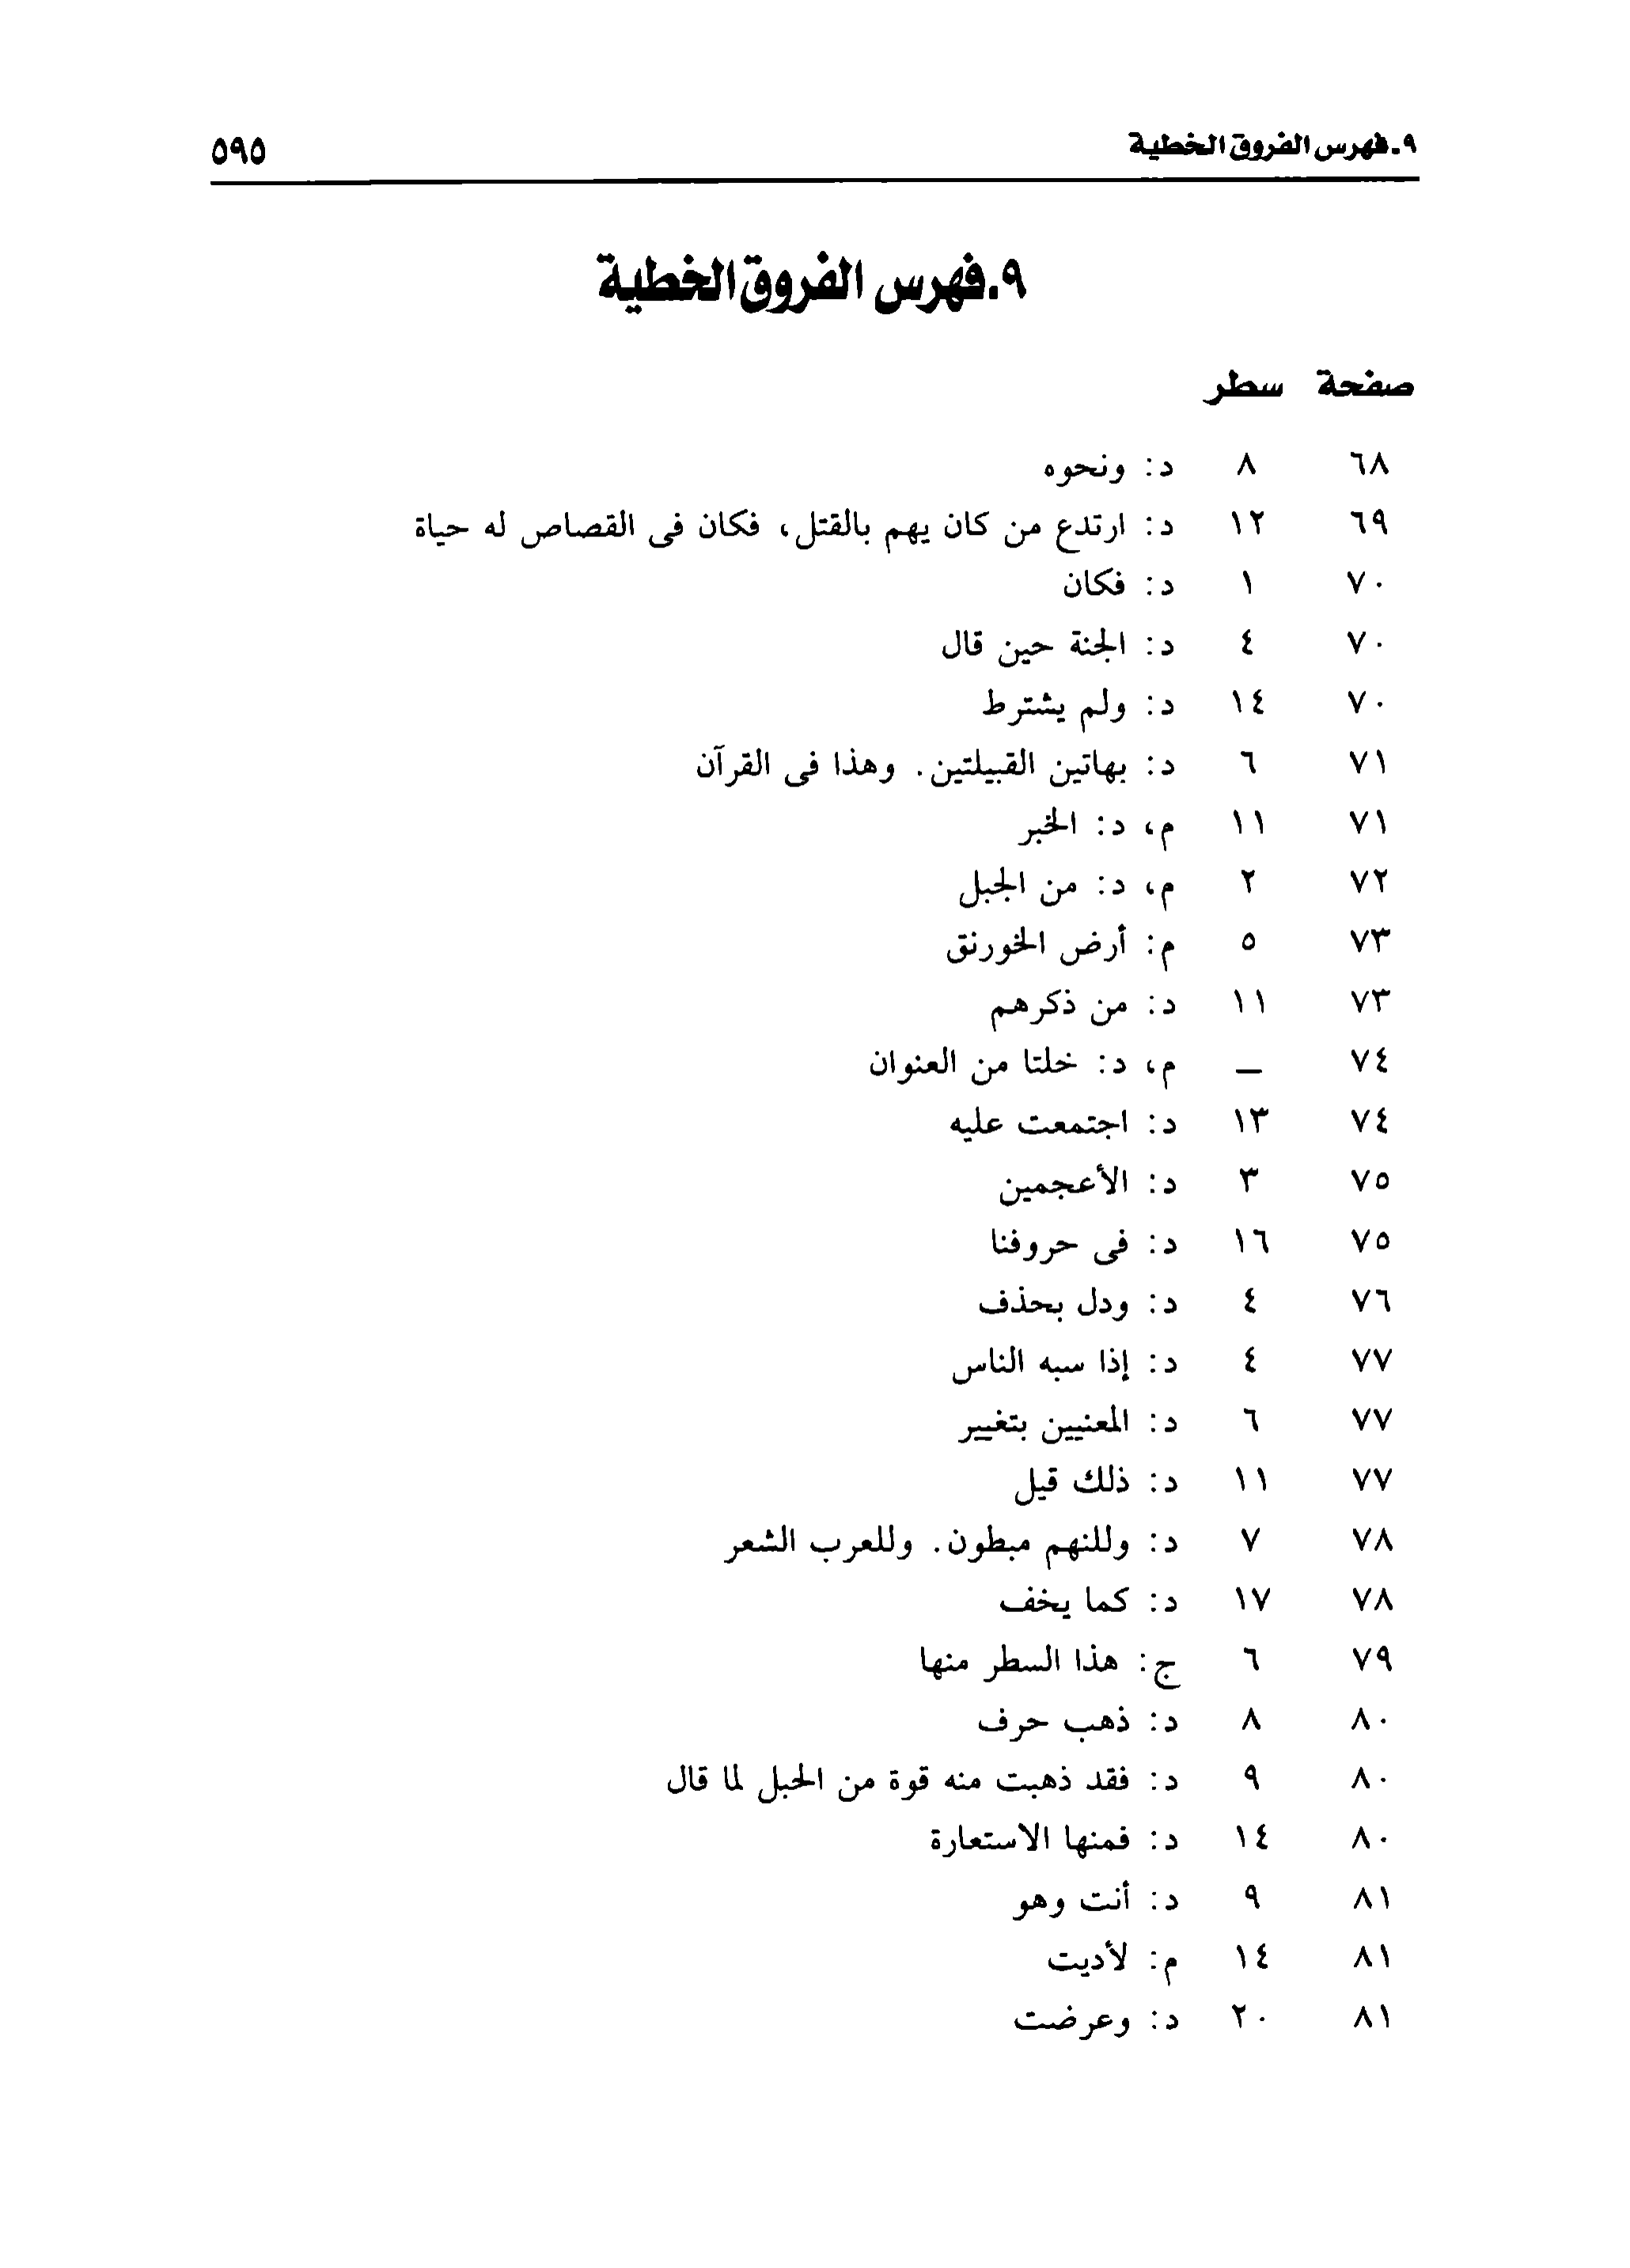 ٩. فهرس الفروق الخطية ٥٩٥
٩. فهرس الفروق الخطية
صفحة سطر
٦٨ ٨ د: ونحوه
٦٩ ١٢ د: ارتدع من كان يهم بالقتل، فكان فى القصاص له حياة
٧٠ ١ د: فكان
٧٠ ٤ د: الجنة حين قال
٧٠ ١٤ د: ولم يشترط
٧١ ٦ د: بهاتين القبيلتين. وهذا فى القرآن
٧١ ١١ م، د: الخبر
٧٢ ٢ م، د: من الجبل
٧٣ ٥ م: أرض الخورنق
٧٣ ١١ د: من ذكرهم
٧٤ – م، د: خلتا من العنوان
٧٤ ١٣ د: اجتمعت عليه
٧٥ ٣ د: الأعجمين
٧٥ ١٦ د: فى حروفنا
٧٦ ٤ د: ودل بحذف
٧٧ ٤ د: إذا سبه الناس
٧٧ ٦ د: المعنيين بتغيير
٧٧ ١١ د: ذلك قيل
٧٨ ٧ د: وللنهم مبطون. وللعرب الشعر
٧٨ ١٧ د: كما يخف
٧٩ ٦ ج: هذا السطر منها
٨٠ ٨ د: ذهب حرف
٨٠ ٩ د: فقد ذهبت منه قوة من الحبل لما قال
٨٠ ١٤ د: فمنها الاستعارة
٨١ ٩ د: أنت وهو
٨١ ١٤ م: لأديت
٨١ ٢٠ د: وعرضت